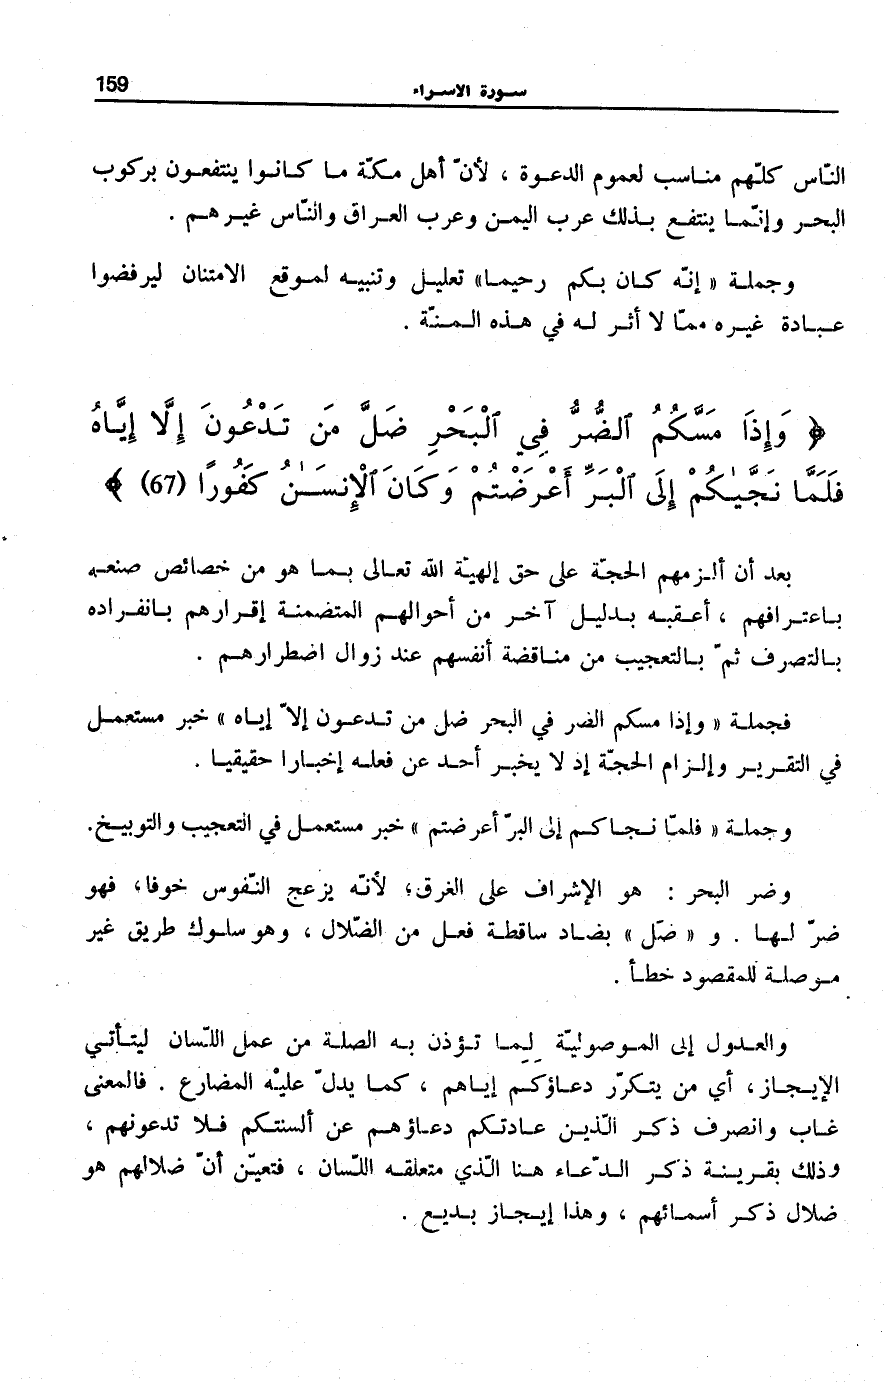 159
سورة الاسراء
النّاس كلّهم مناسب لعموم الدعوة ، لأنّ أهل مكّة ما كانوا ينتفعون بركوب
البحر وإنّما ينتفع بذلك عرب اليمن وعرب العراق والنّاس غيرهم .
وجملة « إنّه كان بكم رحيما» تعليل وتنبيه لموقع الامتنان ليرفضوا
عبادة غيره ممّا لا أثر له في هذه المنّة .
﴿ وَإِذَا مَسَّكُمُ ٱلضُّرُّ فِي ٱلْبَحْرِ ضَلَّ مَن تَدْعُونَ إِلَّا إِيَّاهُ
فَلَمَّا نَجَّيٰكُمْ إِلَى ٱلْبَرِّ أَعْرَضْتُمْ وَكَانَ ٱلْإِنسَـٰنُ كَفُورًا (67) ﴾
بعد أن ألزمهم الحجّة على حق إلهيّة الله تعالى بما هو من خصائص صنعه
باعترافهم ، أعقبه بدليل آخر من أحوالهم المتضمنة إقرارهم بانفراده
بالتصرف ثمّ بالتعجيب من مناقضة أنفسهم عند زوال اضطرارهم .
فجملة « وإذا مسكم الضر في البحر ضل من تدعون إلاّ إياه » خبر مستعمل
في التقرير وإلزام الحجّة إذ لا يخبر أحد عن فعله إخبارا حقيقيا .
وجملة « فلمّا نجاكم إلى البرّ أعرضتم » خبر مستعمل في التعجيب والتوبيخ.
وضر البحر : هو الإشراف على الغرق؛ لأنّه يزعج النّفوس خوفا، فهو
ضرّ لها . و « ضَلّ » بضاد ساقطة فعل من الضّلال ، وهو سلوك طريق غير
موصلة للمقصود خطأ .
والعدول إلى الموصوليّة لِمِا تؤذن به الصلة من عمل اللّسان ليتأتي
الإيجاز، أي من يتكرّر دعاؤكم إياهم ، كما يدلّ عليْه المضارع . فالمعنى
غاب وانصرف ذكر الّذين عادتكم دعاؤهم عن ألسنتكم فلا تدعونهم ،
وذلك بقرينة ذكر الدّعاء هنا الّذي متعلقه اللّسان ، فتعيّن أنّ ضلالهم هو
ضلال ذكر أسمائهم ، وهذا إيجاز بديع .